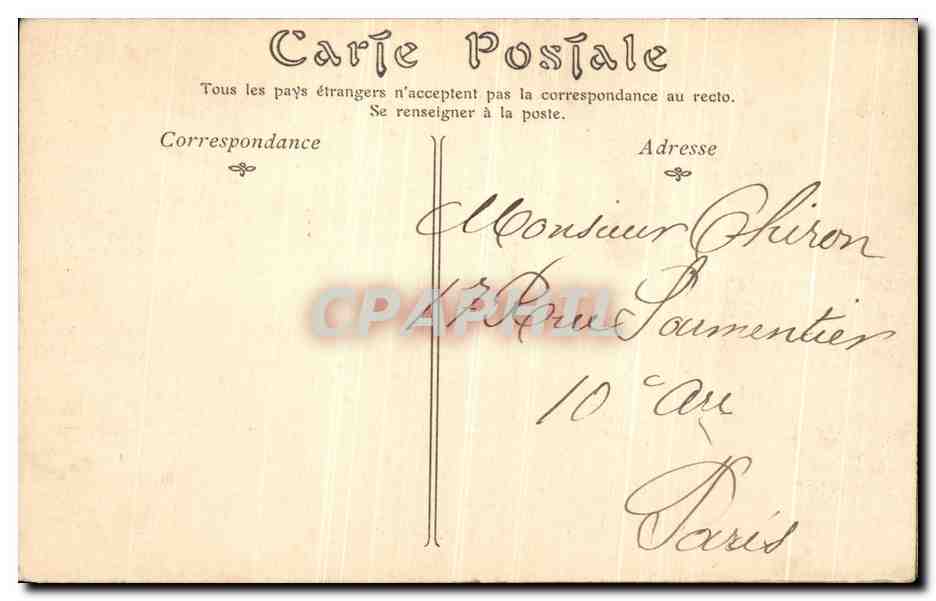 Carte Postale
Tous les pays étrangers n'acceptent pas la correspondance au recto.
Se renseigner à la poste.
Correspondance
Adresse
Monsieur Chiron
17 Rue Parmentier
10e Arr
Paris
CPAPHIL